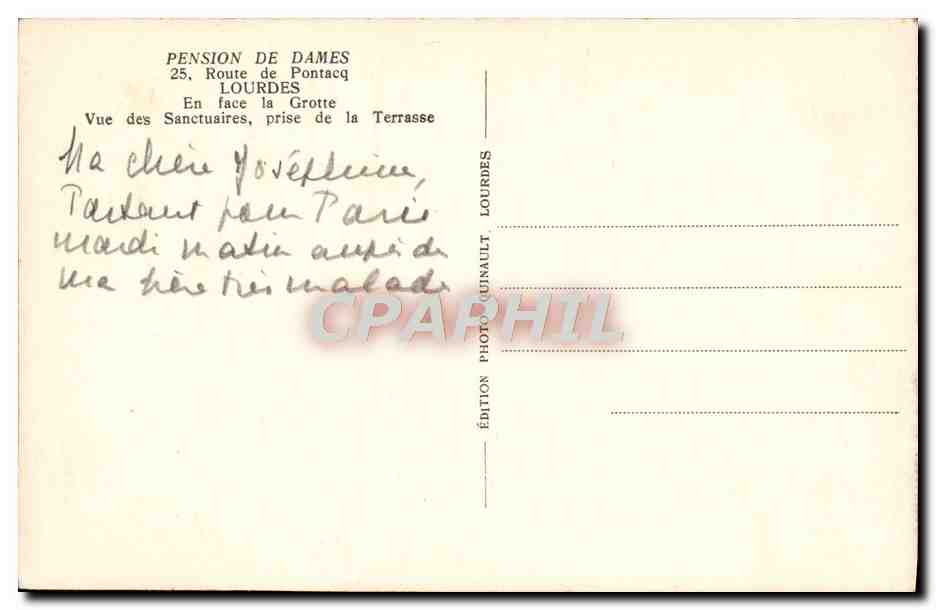 PENSION DE DAMES
25, Route de Pontacq
LOURDES
En face la Grotte
Vue des Sanctuaires, prise de la Terrasse
Ma chère Joséphine,
Partant pour Paris
mardi matin auprès de
ma très malade
ÉDITION PHOTO QUINAULT, LOURDES
CPAPHIL